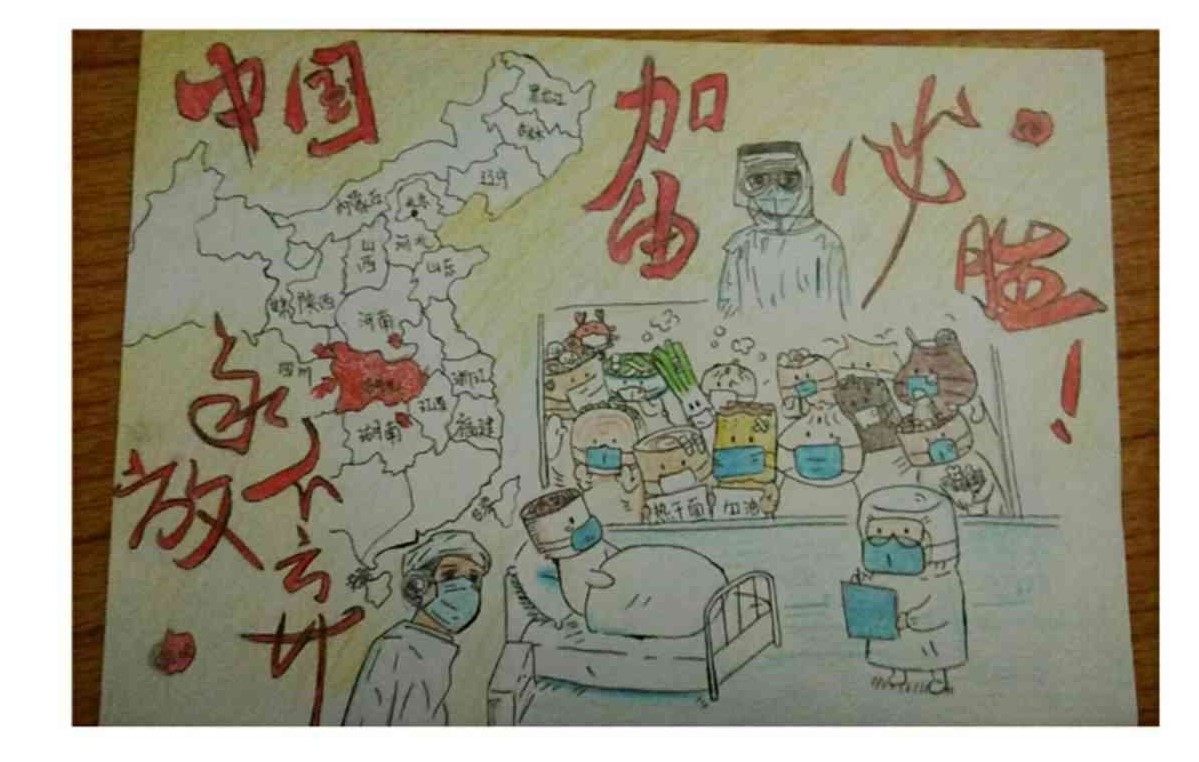 中国
加油
必胜!
永不言弃
放
黑龙江
吉林
辽宁
内蒙古
北京
山西
河北
山东
陕西
河南
四川
湖北
浙江
江西
湖南
福建
台湾
热干面
加油